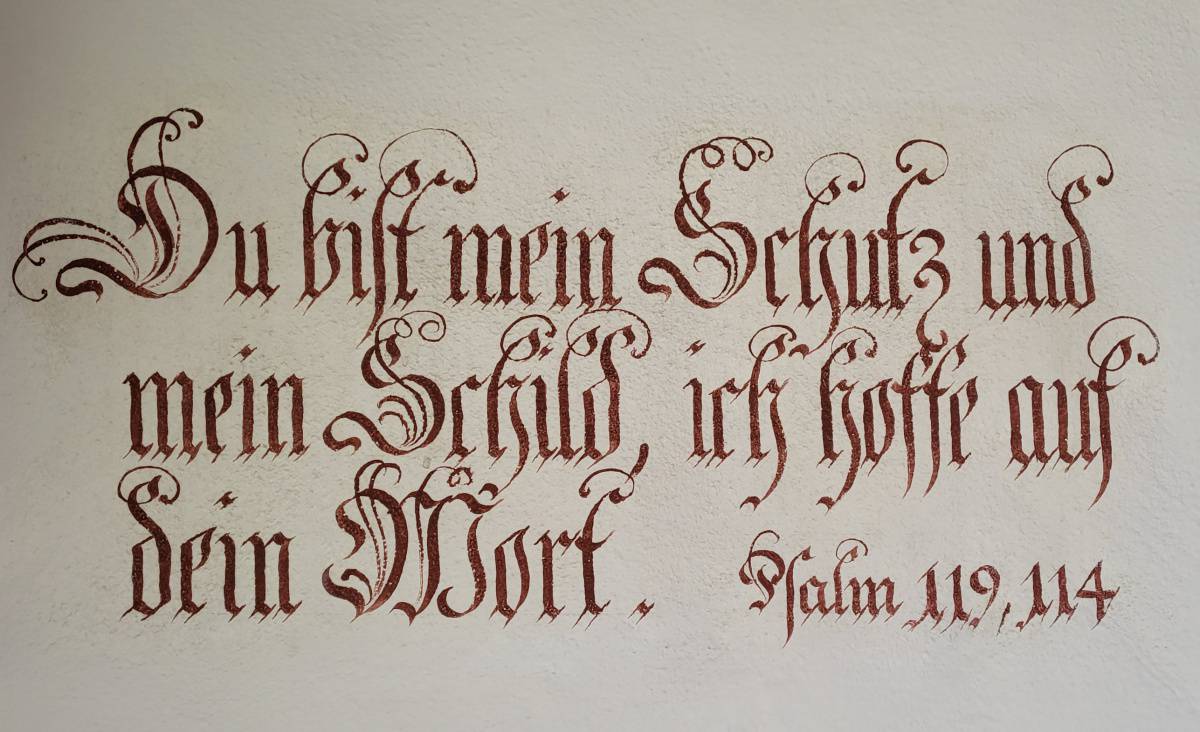 Du bist mein Schutz und
mein Schild, ich hoffe auf
dein Wort.
Psalm 119, 114